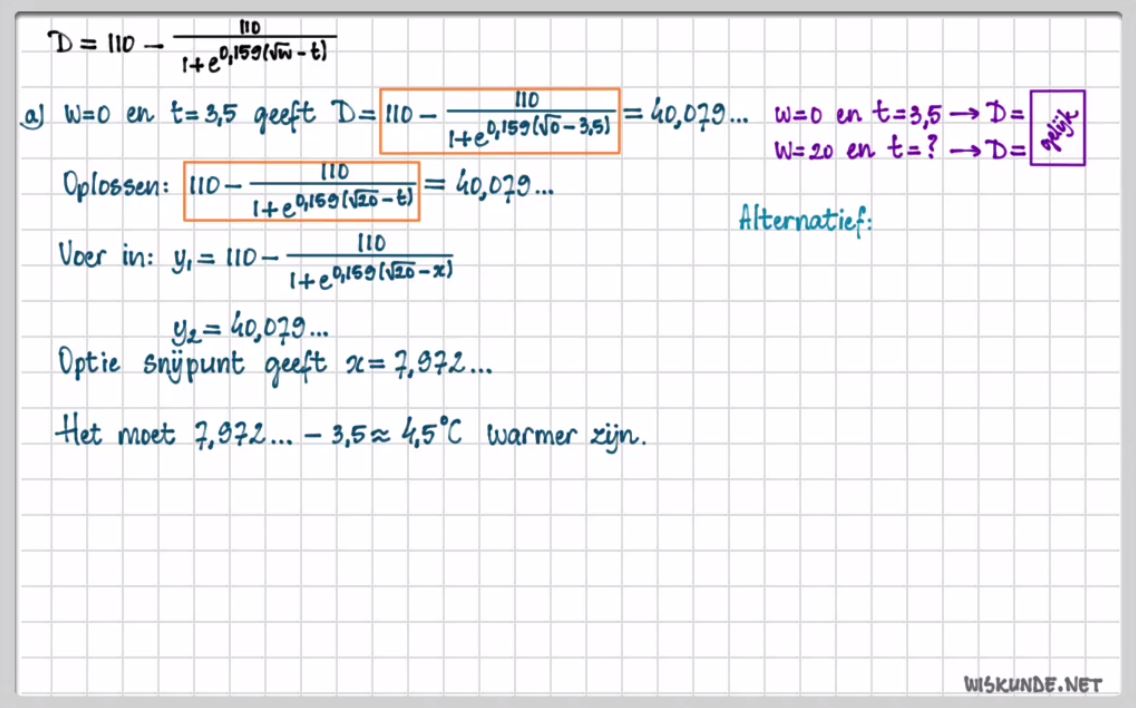 D = 110 − 110/(1+e^(0,159(√w − t)))
a) W=0 en t=3,5 geeft D= 110 − 110/(1+e^(0,159(√0 − 3,5))) = 40,079...
W=0 en t=3,5 → D=
W=20 en t=? → D=
gelijk
Oplossen: 110 − 110/(1+e^(0,159(√20 − t))) = 40,079...
Alternatief:
Voer in: y₁ = 110 − 110/(1+e^(0,159(√20 − x)))
y₂ = 40,079...
Optie snijpunt geeft x = 7,972...
Het moet 7,972... − 3,5 ≈ 4,5°C warmer zijn.
WISKUNDE.NET